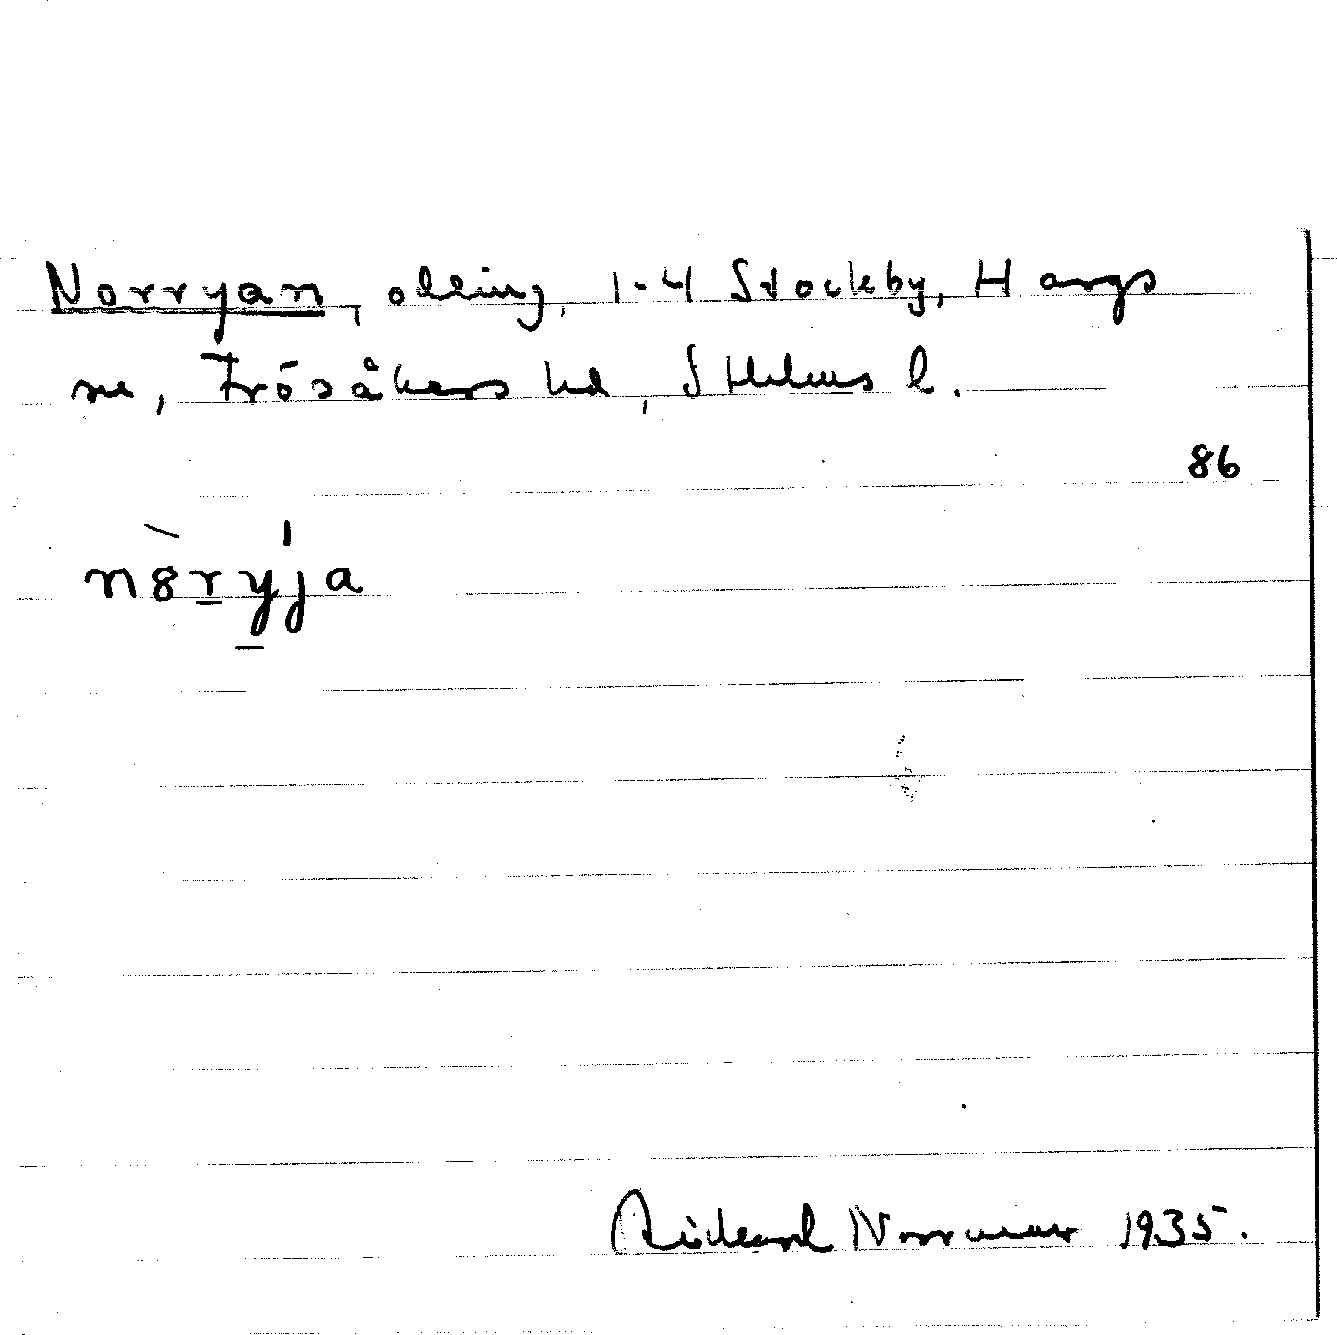 Norryan, odling, 1-4 Stockby, Hargs
sn, Frösåkers hd, Sthlms l.
86
nȯryja
Rickard Norrman 1935.